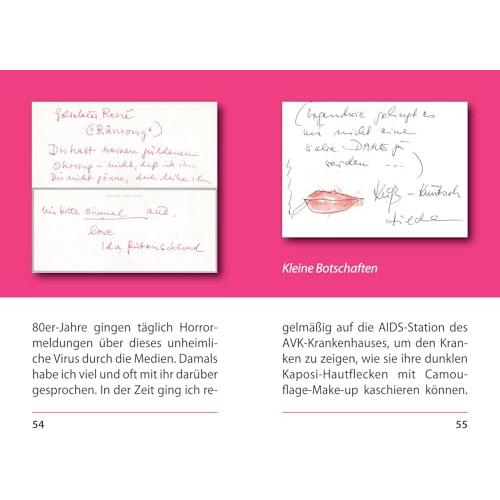 Geliebter René
(Rämong)
Du hast meinen goldenen
Ohrring – nicht, daß ich ihn
Dir nicht gönne, doch leihe ihn
mir bitte einmal aus.
love
Ida
(Irgendwie gelingt es
mir nicht eine
wahre DAME zu
werden ...)
Kuß – Knutsch
Hilde
Kleine Botschaften
80er-Jahre gingen täglich Horror-
meldungen über dieses unheimli-
che Virus durch die Medien. Damals
habe ich viel und oft mit ihr darüber
gesprochen. In der Zeit ging ich re-
54
gelmäßig auf die AIDS-Station des
AVK-Krankenhauses, um den Kran-
ken zu zeigen, wie sie ihre dunklen
Kaposi-Hautflecken mit Camou-
flage-Make-up kaschieren können.
55